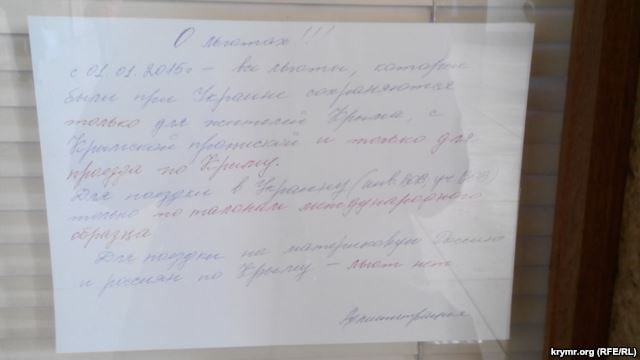 О льготах!!!
с 01.01.2015г – все льготы, которые
были при Украине сохраняются
только для жителей Крыма, с
Крымской пропиской и только для
проезда по Крыму.
Для поездки в Украину (инв. ВОВ, уч. ВОВ)
только по талонам международного
образца
Для поездки на материковую Россию
и россиян по Крыму – льгот нет
Администрация
krymr.org (RFE/RL)